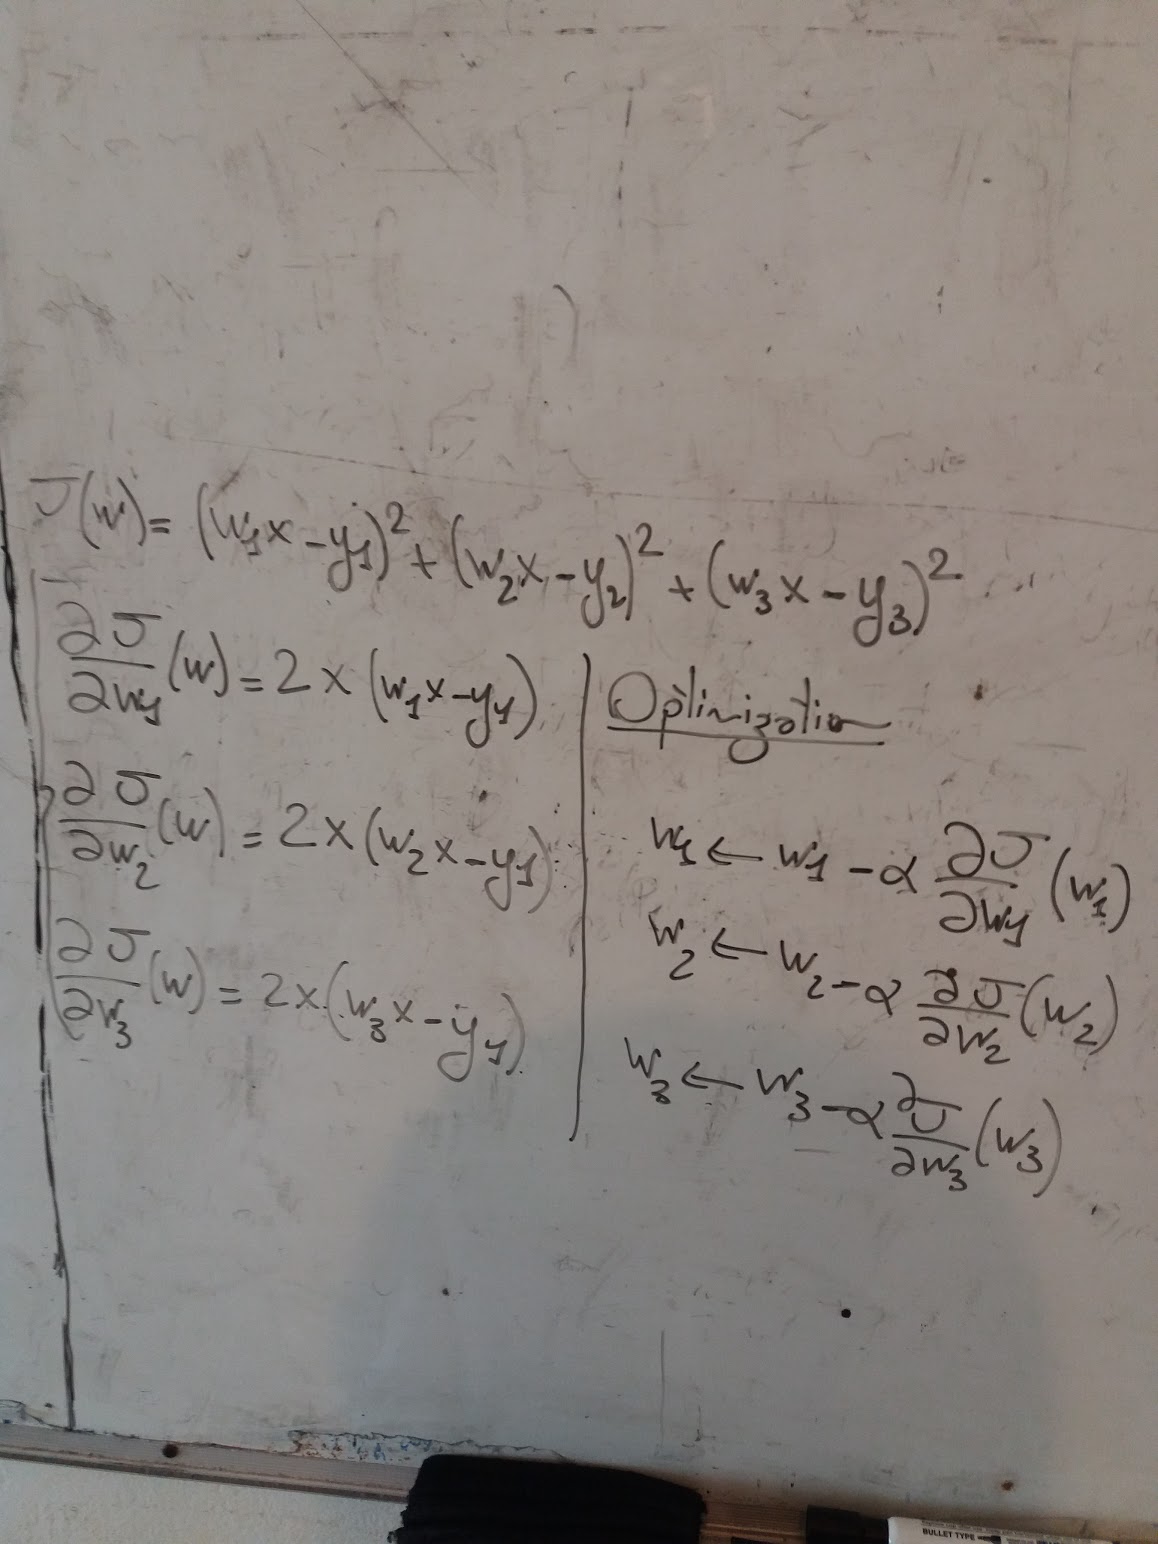 J(w) = (w₁x - y₁)² + (w₂x - y₂)² + (w₃x - y₃)²
∂J/∂w₁ (w) = 2x (w₁x - y₁)
∂J/∂w₂ (w) = 2x (w₂x - y₁)
∂J/∂w₃ (w) = 2x (w₃x - y₁)
Optimization
w₁ ← w₁ - α ∂J/∂w₁ (w₁)
w₂ ← w₂ - α ∂J/∂w₂ (w₂)
w₃ ← w₃ - α ∂J/∂w₃ (w₃)
BULLET TYPE